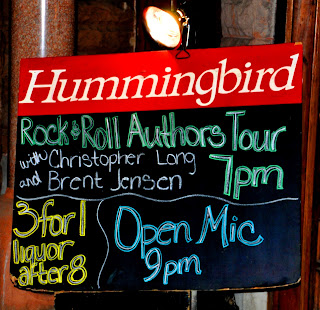 Hummingbird
Rock & Roll Authors Tour
with Christopher Long
and Brent Jensen
7pm
3 for 1
liquor
after 8
Open Mic
9pm